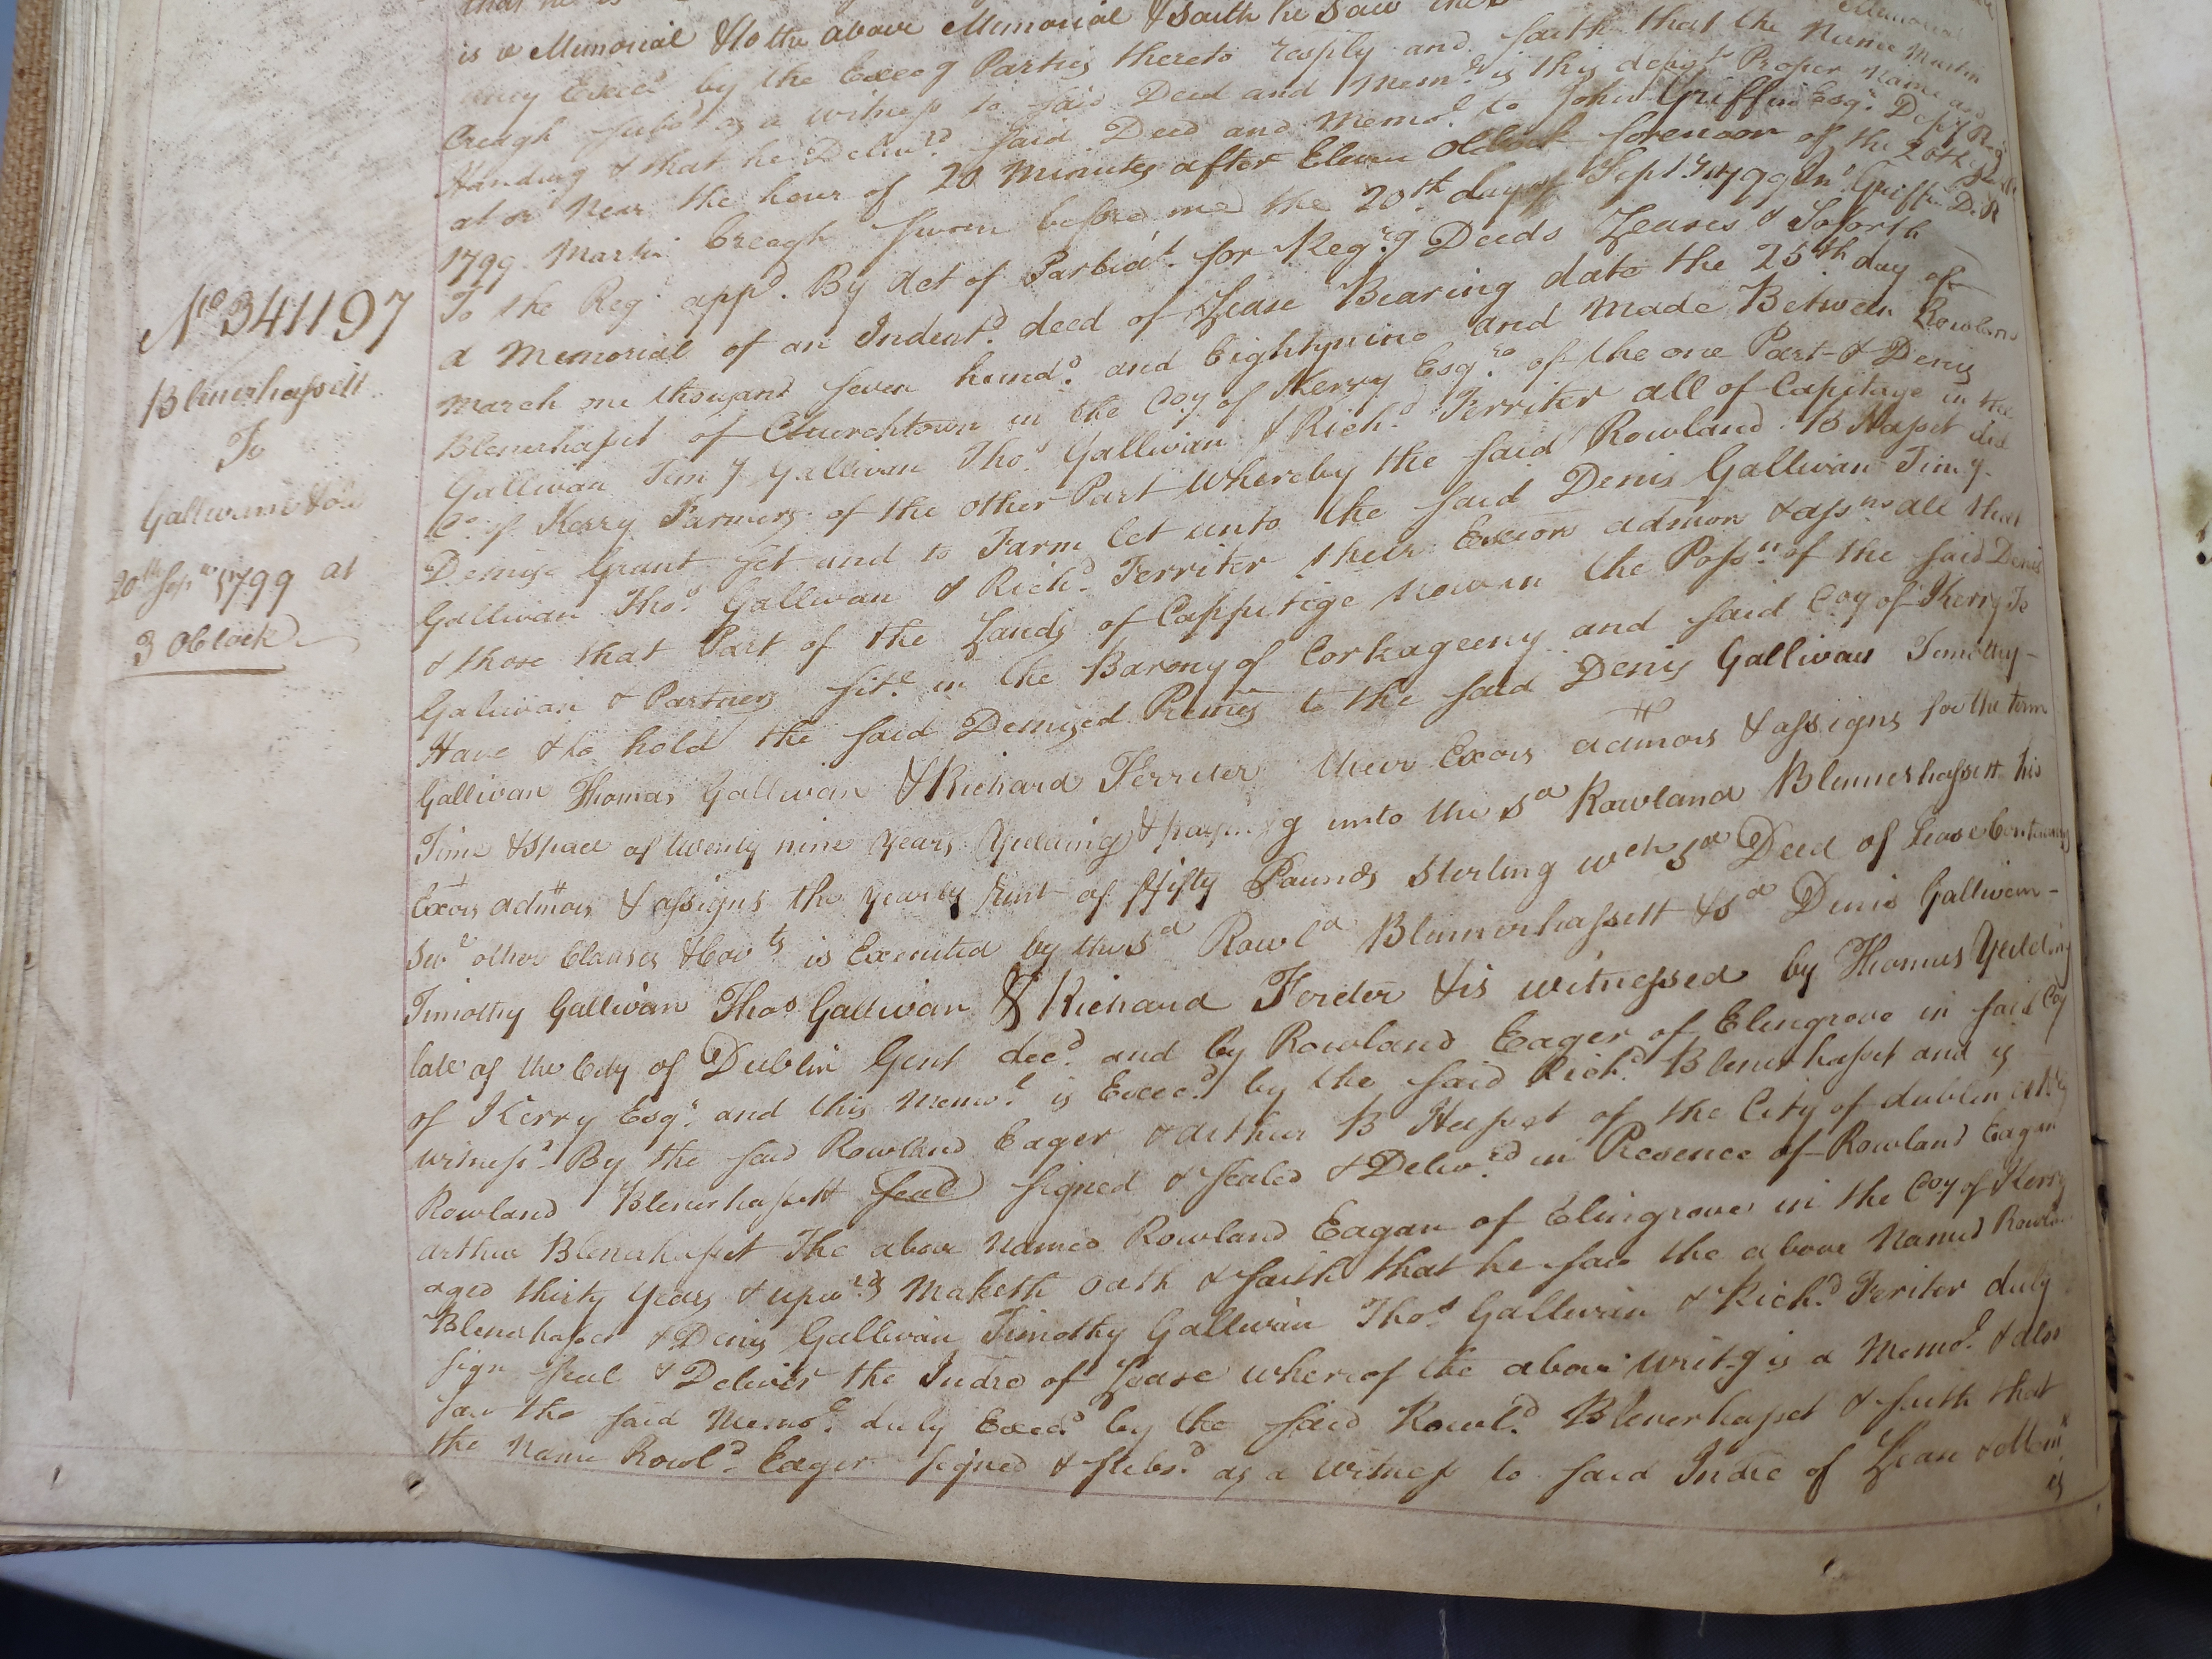 is a Memorial & to the above Memorial & saith he saw
Exec.d by the Execg Parties thereto resply and saith that the Name Martin
Creagh subs.d as a witness to said Deed and Mem.l is this depon.ts Proper Name and
Handwg & that he Deliv.d said Deed and Memo.l to John Griffin Esq.r Dep.y Reg.r
at or Near the hour of 20 Minutes after Eleven OClock forenoon of the 20th
1799. Martin Creagh sworn before me the 20th day of Sept.r 1799 Jn.o Griffin D. R
No. 341197
Blenerhassett
To
Gallivan & or
20th Sepr 1799 at
3 OClock
To the Reg.r app.d By Act of Parliat. for Reg.rg Deeds Leases & Soforth
A Memorial of an Indent.d deed of Lease Bearing date the 25th day of
March one thousand seven hund.d and Eightynine and Made Between Rowland
Blenerhasset of Churchtown in the Coy of Kerry Esq.r of the one Part & Denis
Gallivan Timy Gallivan Tho.s Gallivan & Rich.d Ferriter all of Capitage in the
Co. of Kerry Farmers of the other Part Whereby the said Rowland B Hasset did
Demise Grant set and to Farm let unto the said Denis Gallivan Timy
Gallivan Tho.s Gallivan & Rich.d Ferriter their Execors admors & assns all that
& those that Part of the Lands of Cappitige now in the Poss.n of the said Denis
Galivan & Partners sit.e in the Barony of Corkageeny and said Coy of Kerry To
Have & to hold the said Demised Premes to the said Denis Gallivan Timothy
Gallivan Thomas Gallivan & Richard Ferriter their Exors admors & assigns for the term
Time & space of twenty nine years Yielding & paying unto the sd Rowland Blennerhassett his
Exors admors & assigns the yearly Rent of fifty Pounds Sterling wch sd Deed of Lease Containing
Sevl other Clauses & Covts is Executed by the sd Rowld Blennerhassett & sd Denis Gallivan
Timothy Gallivan Thos Gallivan & Richard Feriter & is witnessed by Thomas Yielding
late of the City of Dublin Gent dec.d and by Rowland Eager of Elmgrove in said Coy
of Kerry Esq.r and this Memo.l is Execd by the said Rich.d Blenerhasset and is
witnessd By the said Rowland Eager & Arthur B Hasset of the City of dublin
Rowland Blenerhassett seal signed & sealed & Deliv.d in Presence of Rowland Eagar
Arthur Blenerhasset The above Named Rowland Eagar of Elmgrove in the Coy of Kerry
aged thirty years & upw.ds Maketh Oath & saith that he saw the above Named Rowland
Blenerhasset & Denis Gallivan Timothy Gallivan Tho.s Gallivan & Rich.d Feriter duly
sign seal & Deliver the Indre of Lease whereof the above writ.g is a Memo.l & also
saw the said Memo.l duly Exec.d by the said Rowl.d Blenerhasset & saith that
the Name Rowl.d Eager signed & subs.d as a Witness to said Indre of Lease & Meml
is